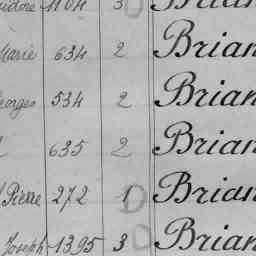 idore 1104 3 Brian
Marie 634 2 Brian
Georges 534 2 Brian
635 2 Brian
Pierre 272 1 Brian
Joseph 1395 3 Brian